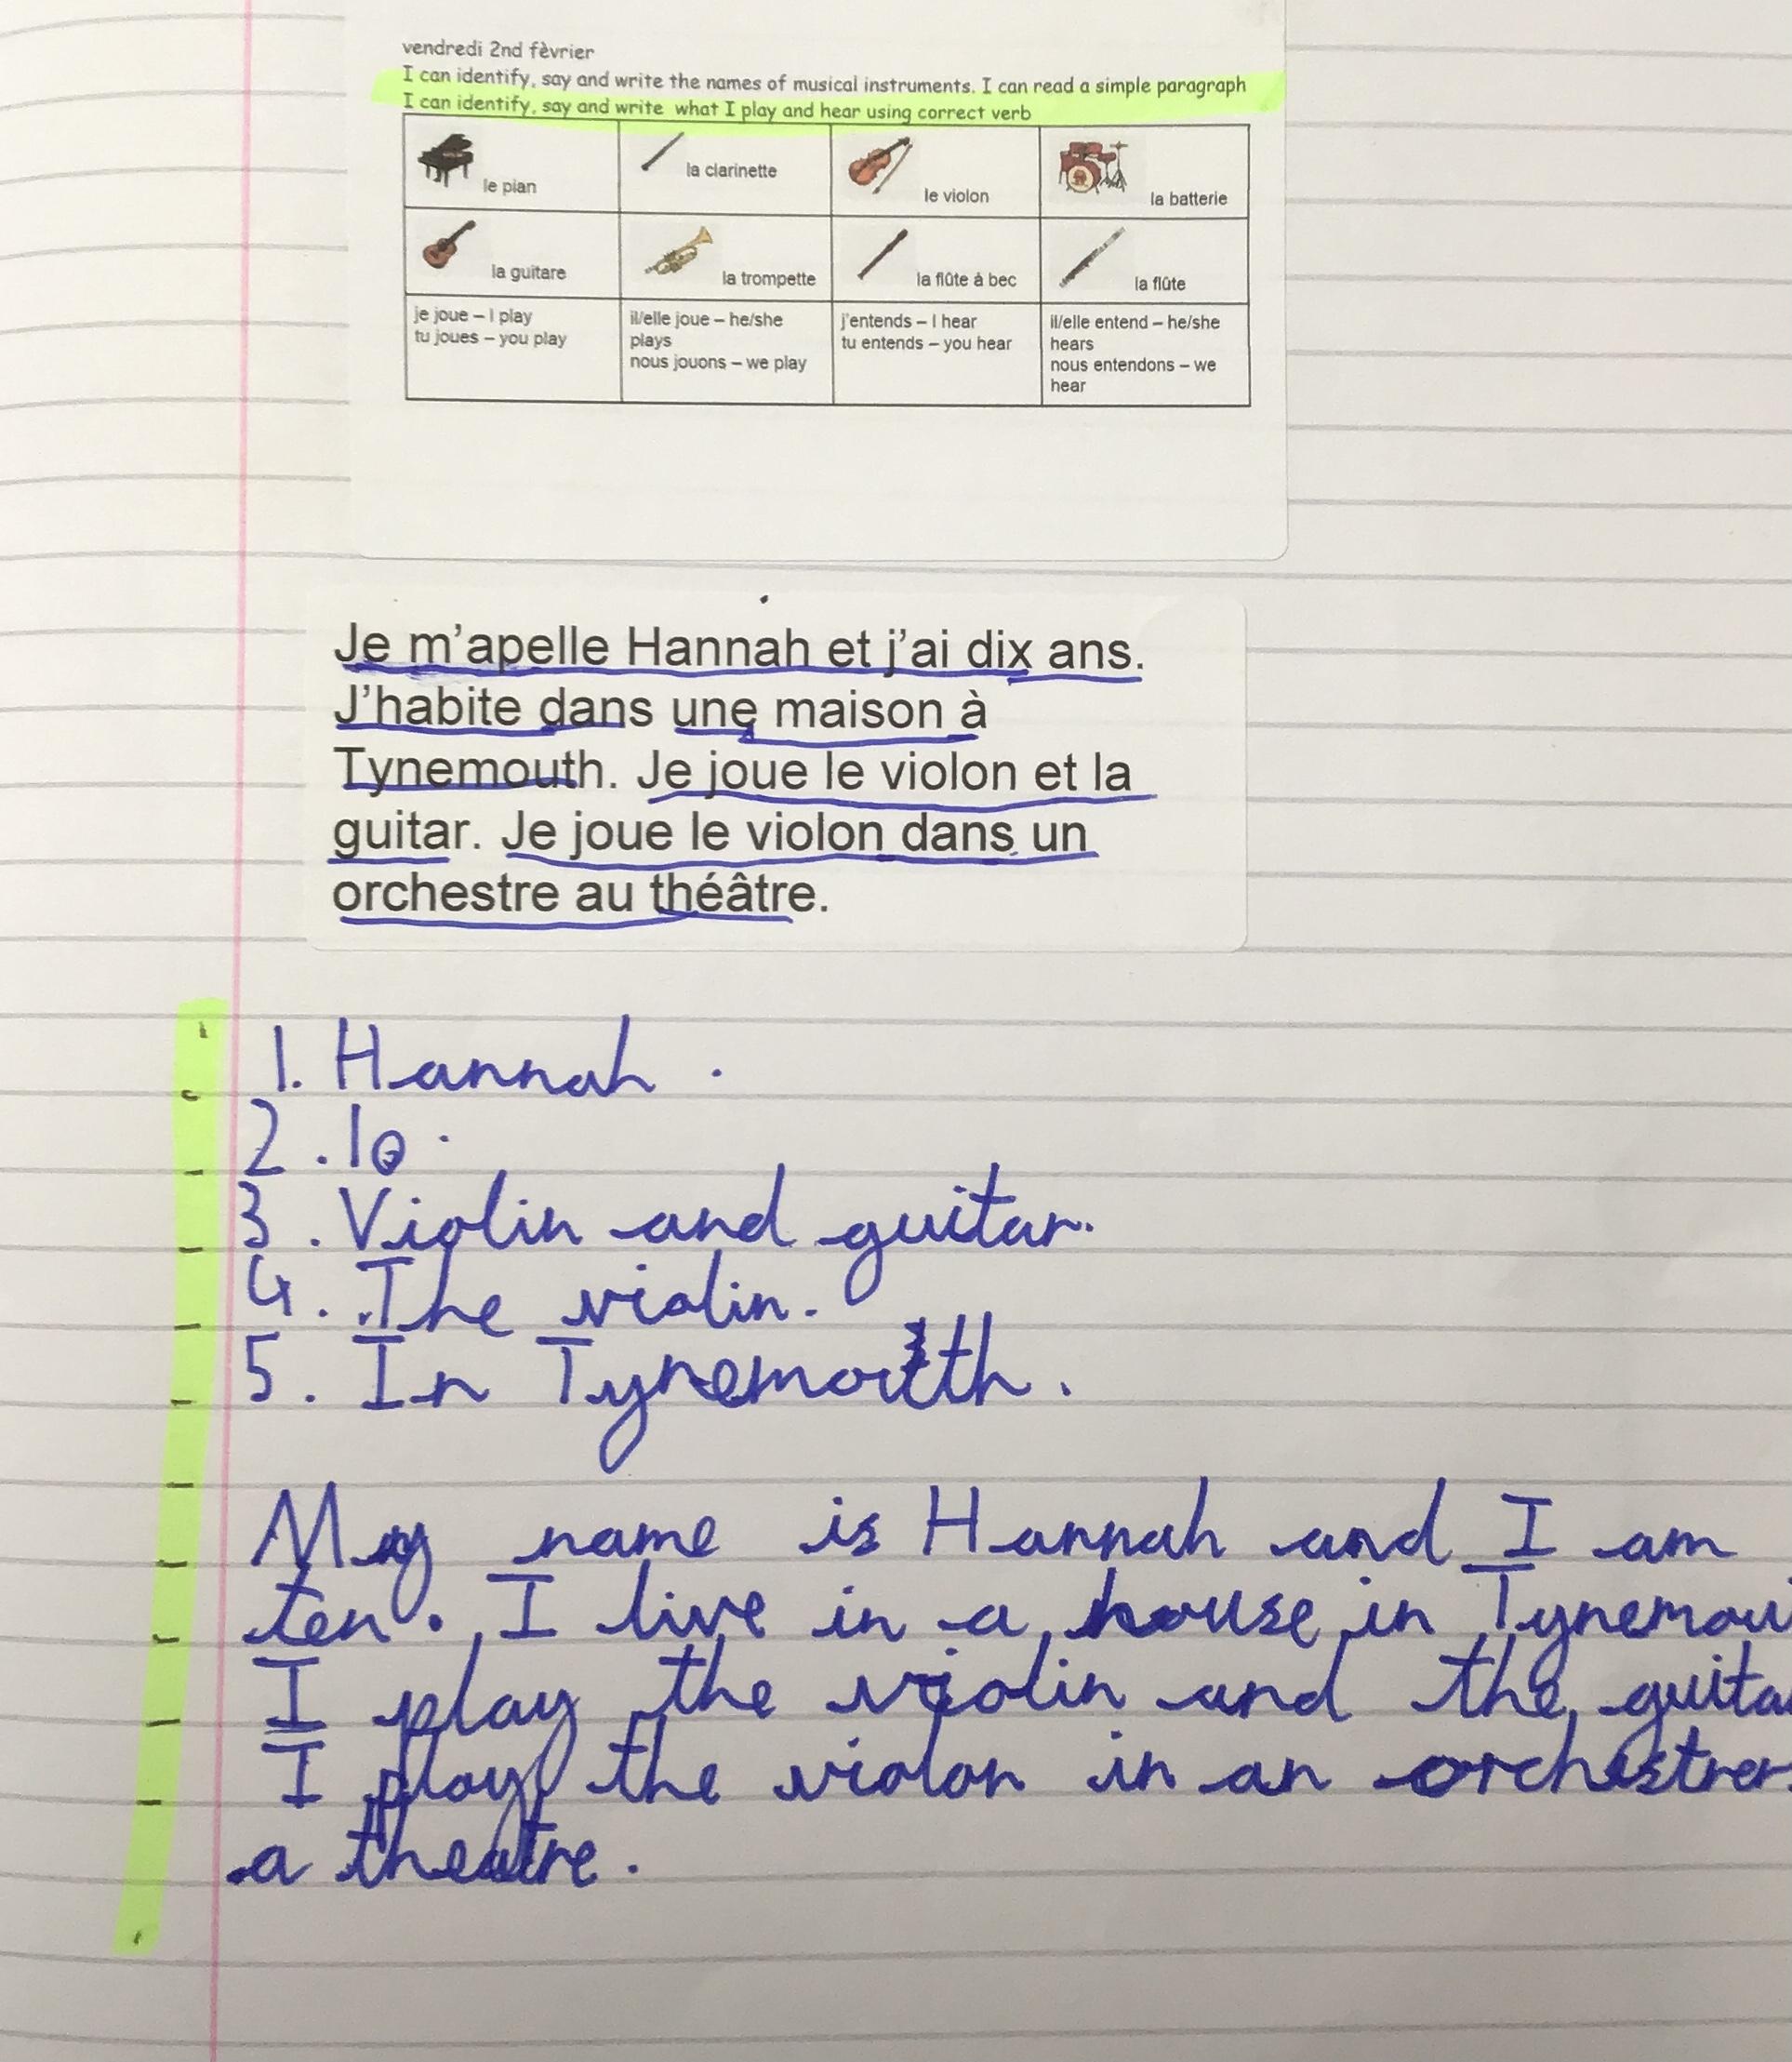 vendredi 2nd fèvrier
I can identify, say and write the names of musical instruments. I can read a simple paragraph
I can identify, say and write what I play and hear using correct verb
le pian
la clarinette
le violon
la batterie
la guitare
la trompette
la flûte á bec
la flûte
je joue – I play
tu joues – you play
il/elle joue – he/she
plays
nous jouons – we play
j'entends – I hear
tu entends – you hear
il/elle entend – he/she
hears
nous entendons – we
hear
Je m'apelle Hannah et j'ai dix ans.
J'habite dans une maison à
Tynemouth. Je joue le violon et la
guitar. Je joue le violon dans un
orchestre au théâtre.
1. Hannah.
2. 10.
3. Violin and guitar.
4. The violin.
5. In Tynemouth.
My name is Hannah and I am
ten. I live in a house in Tynemou
I play the violin and the guita
I play the violon in an orchestrer
a theatre.